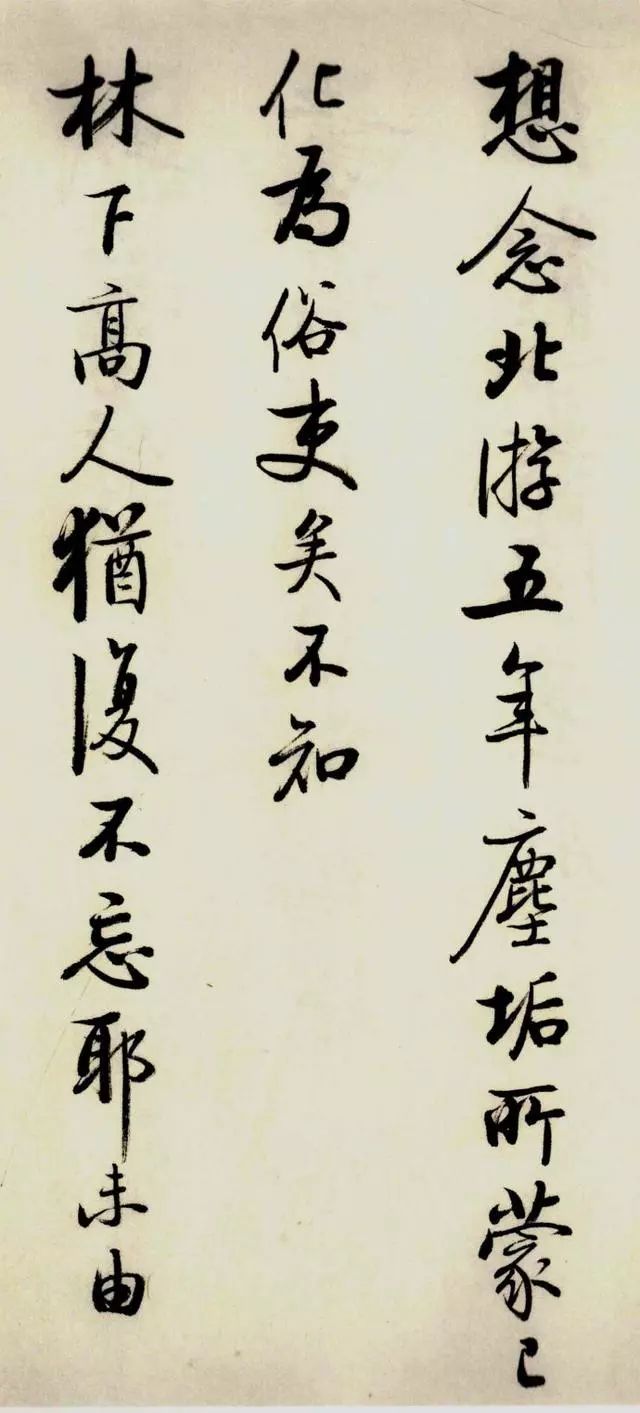 想念北游五年塵垢所蒙已
化為俗吏矣不知
林下高人猶復不忘耶未由